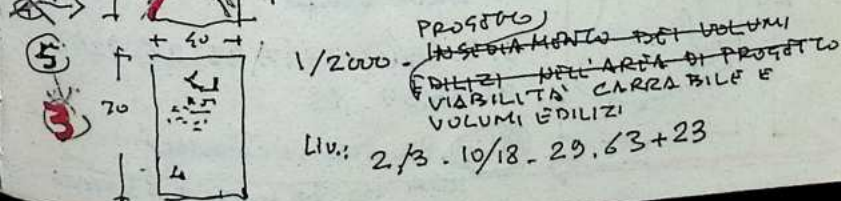 + 40 +
5
3
70
4
1/2000 -
PROGETTO
INSEDIAMENTO DEI VOLUMI
EDILIZI NELL'AREA DI PROGETTO
VIABILITÀ CARRABILE E
VOLUMI EDILIZI
LIV.: 2/3 . 10/18 - 29.63+23